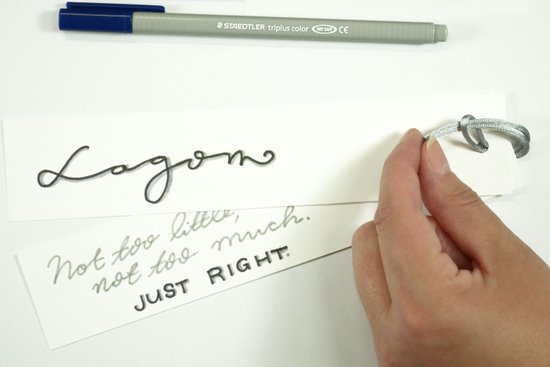 STAEDTLER triplus color DRY SAFE CE
Lagom
Not too little,
not too much.
JUST RIGHT.